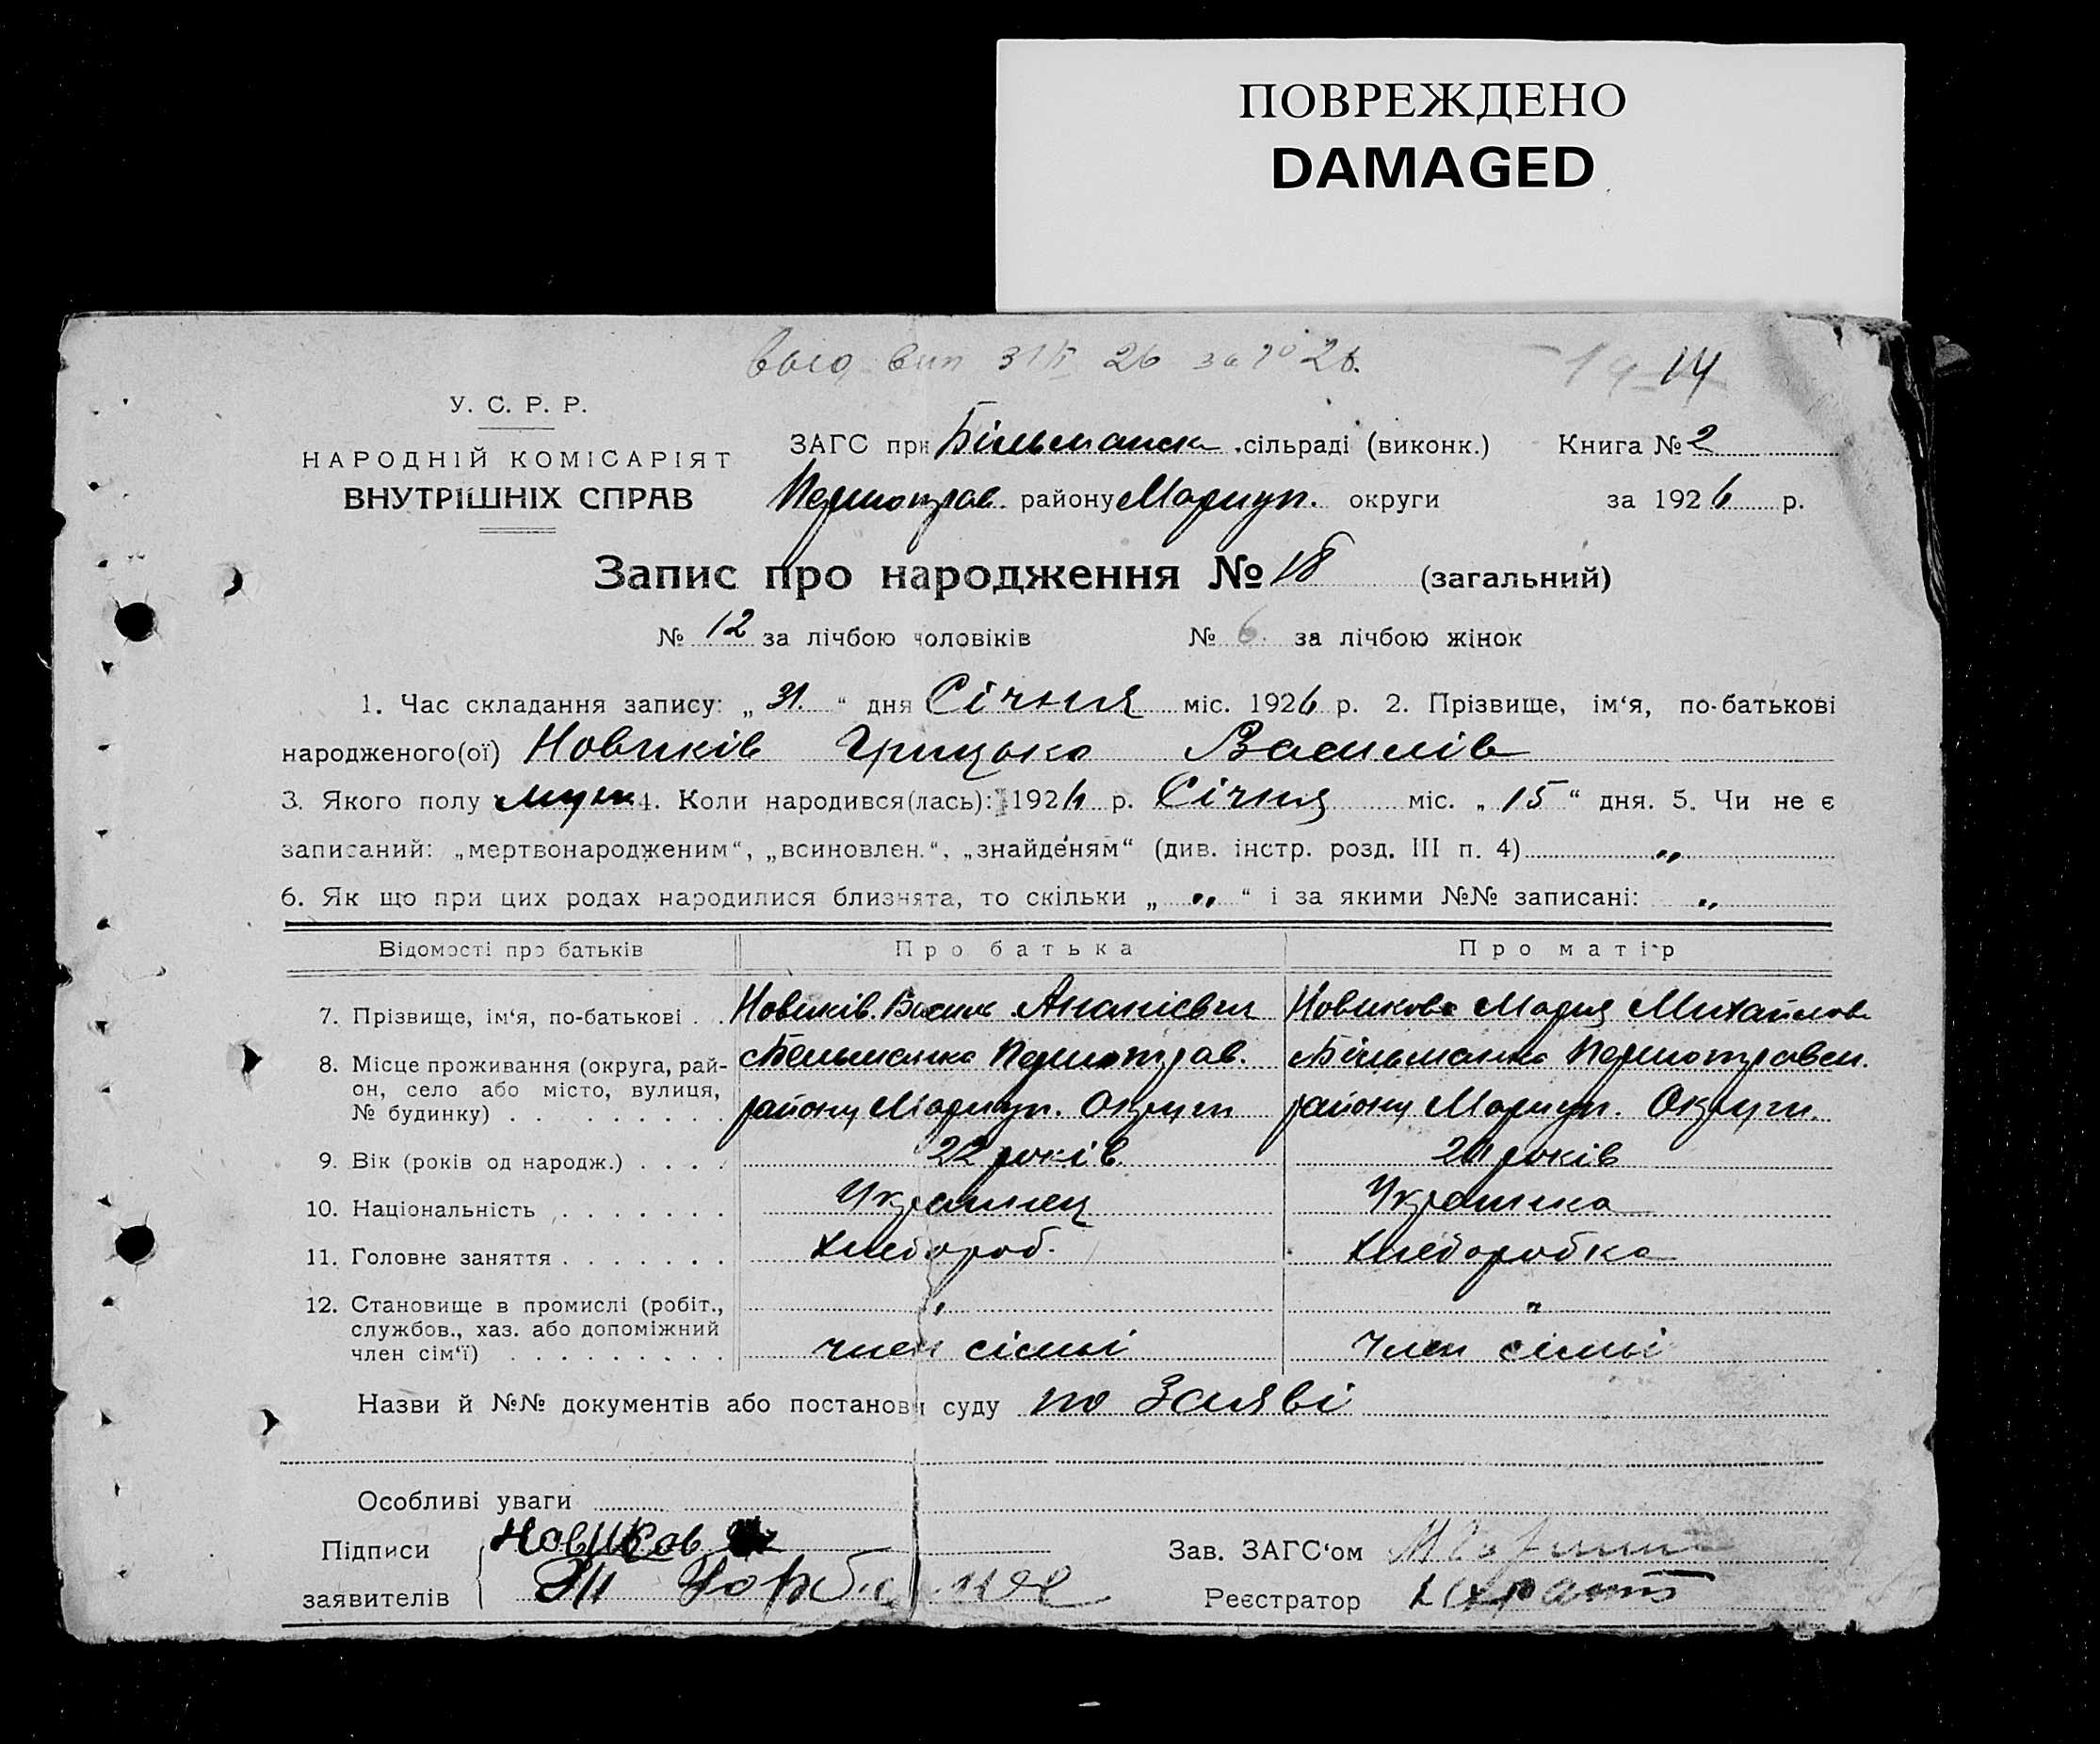 ПОВРЕЖДЕНО
DAMAGED
26 за № 26.
14
У. С. Р. Р.
НАРОДНІЙ КОМІСАРІЯТ
ВНУТРІШНІХ СПРАВ
ЗАГС при Більманск. сільраді (виконк.) Книга № 2
Першотрав. району Маріуп. округи за 1926 р.
Запис про народження № 18 (загальний)
№ 12 за лічбою чоловіків № 6. за лічбою жінок
1. Час складання запису: „ 31. “ дня Січня міс. 1926 р. 2. Прізвище, ім‘я, по-батькові
народженого(ої) Новиків Грицько Василів
3. Якого полу муж 4. Коли народився(лась): 1926 р. Січня міс. „ 15 “ дня. 5. Чи не є
записаний: „мертвонародженим“, „всиновлен.“, „знайденям“ (див. інстр. розд. III п. 4) „
6. Як що при цих родах народилися близнята, то скільки „ „ “ і за якими №№ записані: „
Відомості про батьків Про батька Про матір
7. Прізвище, ім‘я, по-батькові . . Новиків Василь Ананієвич Новикова Мария Михайлов
8. Місце проживання (округа, рай- Бельманка Першотрав. Більманка Першотравен.
он, село або місто, вулиця,
№ будинку) . . . . . . . . . району Маріуп. Округи району Маріуп. Округи.
9. Вік (років од народж.) . . . . 22 років 21 років
10. Національність . . . . . . . Украинец Украинка
11. Головне заняття . . . . . . . Хлебороб. Хлеборобка
12. Становище в промислі (робіт., „ „
службов., хаз. або допоміжний
член сім‘ї) . . . . . . . . . член сімьі член сімьі
Назви й №№ документів або постанови суду по Заяві
Особливі уваги
Підписи Новиков
заявителів
Зав. ЗАГС‘ом
Реєстратор